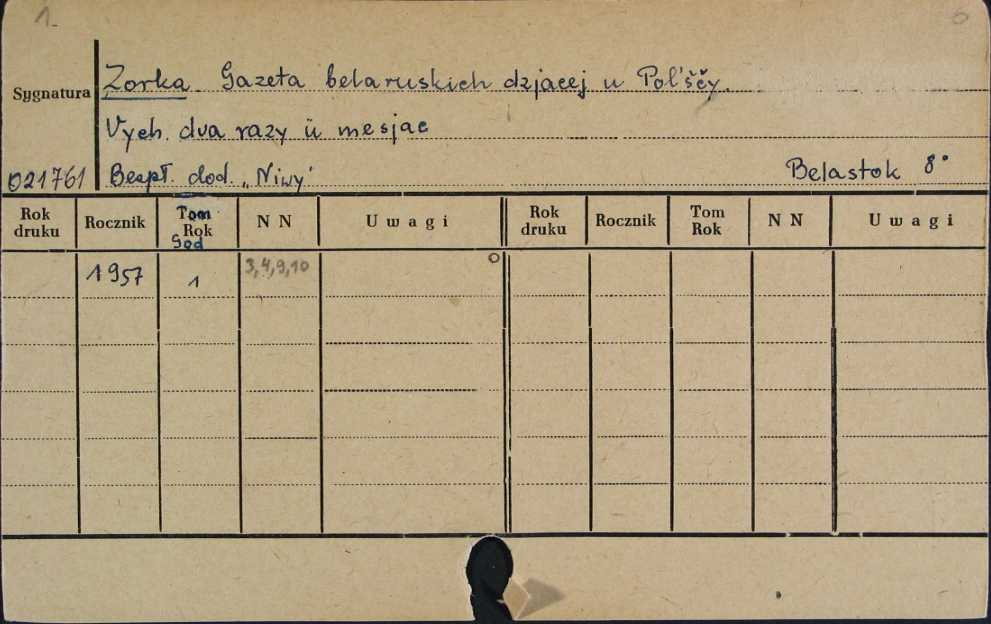 1.
0
Zorka Gazeta belaruskich dzjacej u Pol'ščy.
Sygnatura
Vych. dva razy ŭ mesjac
021761 Bezpł. dod. „Niwy" Belastok 8°
Rok druku Rocznik Tom Rok God N N Uwagi Rok druku Rocznik Tom Rok N N Uwagi
1957 1 3,4,9,10